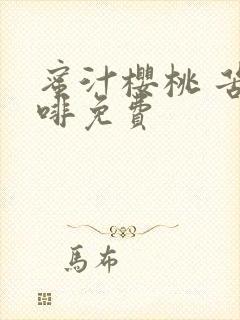 蜜汁櫻桃 苦
啡免費
馬布